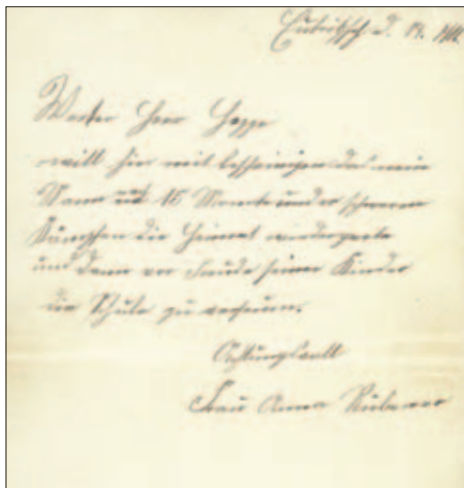 Eutritzsch d. 19.
Werter Herr Hoppe
will hier mit bescheinigen das mein
Mann 16 Monate unter schweren
Kämpfen die Heimat wiedersehte
und dann vor Freude seiner Kinder
die Schule zu versäumen.
Achtungsvoll
Frau Anna